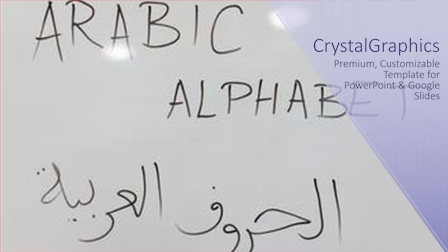 ARABIC
ALPHABET
الحروف العربية
CrystalGraphics
Premium, Customizable
Template for
PowerPoint & Google
Slides